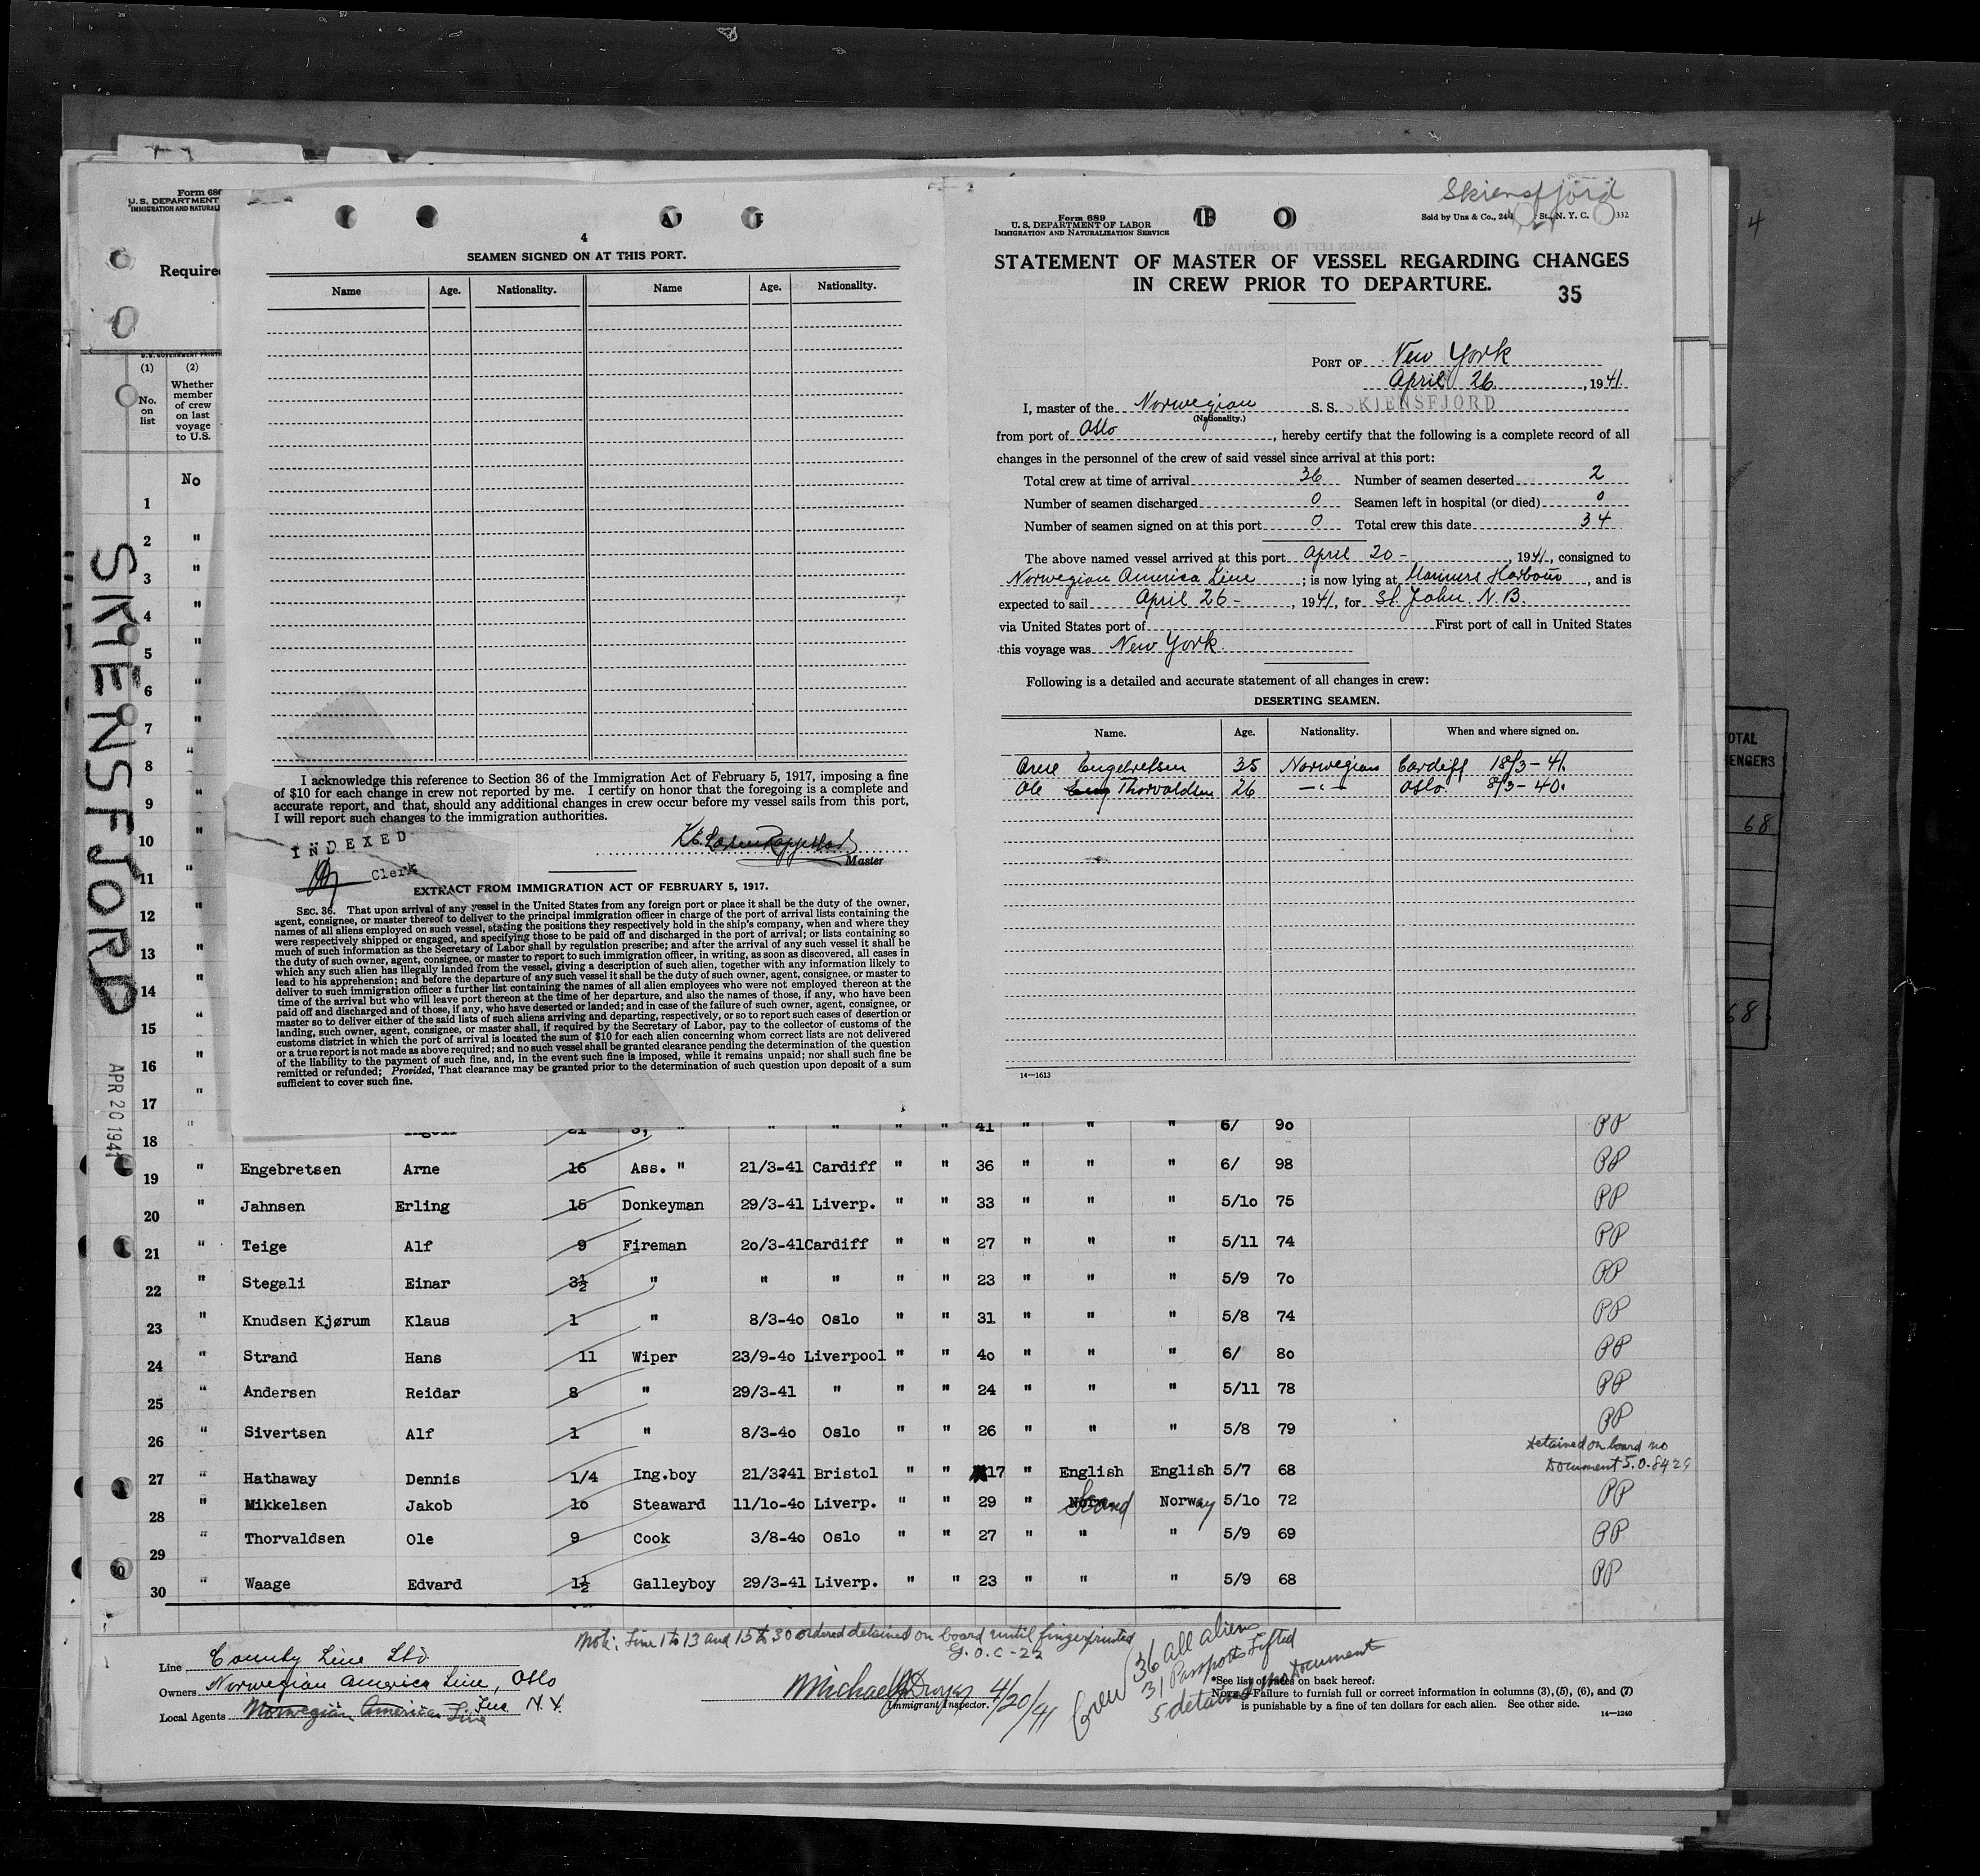 Skiensfjord
Form 689
U. S. DEPARTMENT OF LABOR
IMMIGRATION AND NATURALIZATION SERVICE
Sold by Unz & Co., 24 St., N. Y. C. 332
STATEMENT OF MASTER OF VESSEL REGARDING CHANGES
IN CREW PRIOR TO DEPARTURE.
35
PORT OF New York
April 26, 1941
I, master of the Norwegian S. S. SKIENSFJORD
(Nationality.)
from port of Oslo, hereby certify that the following is a complete record of all
changes in the personnel of the crew of said vessel since arrival at this port:
Total crew at time of arrival 36 Number of seamen deserted 2
Number of seamen discharged 0 Seamen left in hospital (or died) 0
Number of seamen signed on at this port 0 Total crew this date 34
The above named vessel arrived at this port April 20 -, 1941, consigned to
Norwegian America Line; is now lying at Mariners Harbour, and is
expected to sail April 26 -, 1941, for St. John. N. B.
via United States port of First port of call in United States
this voyage was New York.
Following is a detailed and accurate statement of all changes in crew:
DESERTING SEAMEN.
Name. Age. Nationality. When and where signed on.
Arne Engebretsen 35 Norwegian Cardiff 18/3-41.
Ole Thorvaldsen 26 -"- Oslo 8/3-40.
14—1613
4
SEAMEN SIGNED ON AT THIS PORT.
Name Age. Nationality. Name Age. Nationality.
I acknowledge this reference to Section 36 of the Immigration Act of February 5, 1917, imposing a fine
of $10 for each change in crew not reported by me. I certify on honor that the foregoing is a complete and
accurate report, and that, should any additional changes in crew occur before my vessel sails from this port,
I will report such changes to the immigration authorities.
INDEXED
Clerk
Master
EXTRACT FROM IMMIGRATION ACT OF FEBRUARY 5, 1917.
SEC. 36. That upon arrival of any vessel in the United States from any foreign port or place it shall be the duty of the owner,
agent, consignee, or master thereof to deliver to the principal immigration officer in charge of the port of arrival lists containing the
names of all aliens employed on such vessel, stating the positions they respectively hold in the ship's company, when and where they
were respectively shipped or engaged, and specifying those to be paid off and discharged in the port of arrival; or lists containing so
much of such information as the Secretary of Labor shall by regulation prescribe; and after the arrival of any such vessel it shall be
the duty of such owner, agent, consignee, or master to report to such immigration officer, in writing, as soon as discovered, all cases in
which any such alien has illegally landed from the vessel, giving a description of such alien, together with any information likely to
lead to his apprehension; and before the departure of any such vessel it shall be the duty of such owner, agent, consignee, or master to
deliver to such immigration officer a further list containing the names of all alien employees who were not employed thereon at the
time of the arrival but who will leave port thereon at the time of her departure, and also the names of those, if any, who have been
paid off and discharged and of those, if any, who have deserted or landed; and in case of the failure of such owner, agent, consignee, or
master so to deliver either of the said lists of such aliens arriving and departing, respectively, or so to report such cases of desertion or
landing, such owner, agent, consignee, or master shall, if required by the Secretary of Labor, pay to the collector of customs of the
customs district in which the port of arrival is located the sum of $10 for each alien concerning whom correct lists are not delivered
or a true report is not made as above required; and no such vessel shall be granted clearance pending the determination of the question
of the liability to the payment of such fine, and, in the event such fine is imposed, while it remains unpaid; nor shall such fine be
remitted or refunded; Provided, That clearance may be granted prior to the determination of such question upon deposit of a sum
sufficient to cover such fine.
Form 68
U. S. DEPARTMENT
IMMIGRATION AND NATURALI
Require
(1) (2)
No. on list
Whether member of crew on last voyage to U.S.
SKIENSFJORD
APR 20 1941
No
1
2 "
3 "
4 "
5 "
6 "
7 "
8 "
9 "
10 "
11 "
12 "
13 "
14 "
15 "
16 "
17 "
18 " 21 3, " " " " " 41 " " " 6/ 90 PP
19 " Engebretsen Arne 16 Ass. " 21/3-41 Cardiff " " 36 " " " 6/ 98 PP
20 " Jahnsen Erling 15 Donkeyman 29/3-41 Liverp. " " 33 " " " 5/10 75 PP
21 " Teige Alf 9 Fireman 20/3-41 Cardiff " " 27 " " " 5/11 74 PP
22 " Stegali Einar 3½ " " " " " 23 " " " 5/9 70 PP
23 " Knudsen Kjørum Klaus 1 " 8/3-40 Oslo " " 31 " " " 5/8 74 PP
24 " Strand Hans 11 Wiper 23/9-40 Liverpool " " 40 " " " 6/ 80 PP
25 " Andersen Reidar 8 " 29/3-41 " " " 24 " " " 5/11 78 PP
26 " Sivertsen Alf 1 " 8/3-40 Oslo " " 26 " " " 5/8 79 PP
detained on board no
Document S.O-8429
27 " Hathaway Dennis 1/4 Ing.boy 21/3341 Bristol " " 17 " English English 5/7 68
28 " Mikkelsen Jakob 10 Steaward 11/10-40 Liverp. " " 29 " Scand Norway 5/10 72 PP
29 " Thorvaldsen Ole 9 Cook 3/8-40 Oslo " " 27 " " " 5/9 69 PP
30 " Waage Edvard 1½ Galleyboy 29/3-41 Liverp. " " 23 " " " 5/9 68 PP
Note: Line 1 to 13 and 15 to 30 ordered detained on board until fingerprinted
G.O.C-22
Line County Line Ltd
Owners Norwegian America Line, Oslo
Local Agents Norwegian America Line Inc N.Y.
Immigrant Inspector. 4/20/41
Crew 36 all aliens
31 Passports Lifted
5 detained no Document
*See list of races on back hereof.
NOTE.—Failure to furnish full or correct information in columns (3), (5), (6), and (7)
is punishable by a fine of ten dollars for each alien. See other side.
14—1240
4
OTAL
ENGERS
68
68